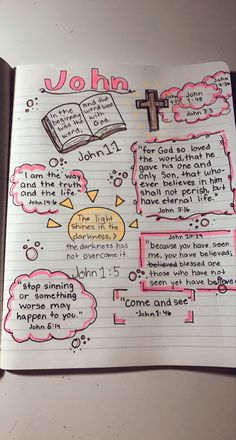 John
In the
beginning
was the
word,
and the
word was
with
God.
John 1:1
John
1:48
John 3:3
"for God so loved
the world, that he
gave his one and
only Son, that who-
ever believes in him
shall not perish but
have eternal life."
John 3:16
"I am the way
and the truth
and the life."
John 14:6
The light
shines in the
darkness,
the darkness has
not overcome it.
John 1:5
John 20:29
"because you have seen
me, you have believed;
believed blessed are
those who have not
seen yet have believe
"Stop sinning
or something
worse may
happen to you."
John 5:14
"Come and see"
-John 1:46